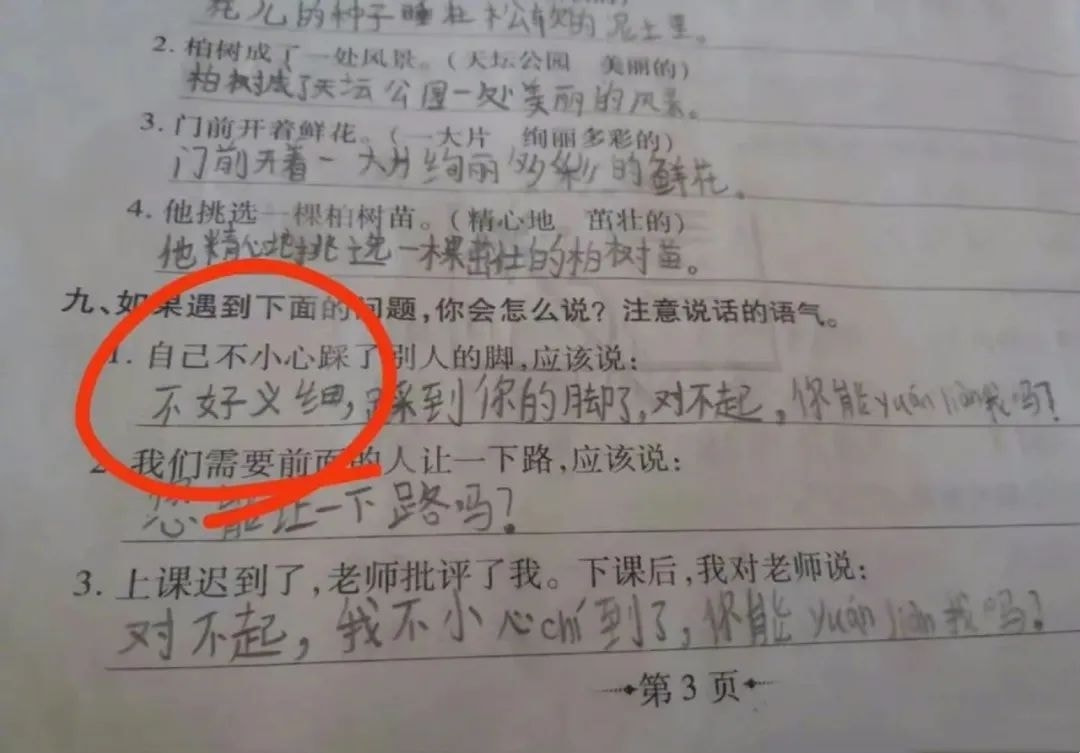 花儿的种子睡在松软的泥土里。
2. 柏树成了一处风景。(天坛公园 美丽的)
柏树成了天坛公园一处美丽的风景。
3. 门前开着鲜花。(一大片 绚丽多彩的)
门前开着一大片绚丽多彩的鲜花。
4. 他挑选一棵柏树苗。(精心地 茁壮的)
他精心地挑选一棵茁壮的柏树苗。
九、如果遇到下面的问题,你会怎么说?注意说话的语气。
1. 自己不小心踩了别人的脚,应该说:
不好义细,踩到你的脚了,对不起,你能yuán liàn我吗?
2. 我们需要前面的人让一下路,应该说:
您能让一下路吗?
3. 上课迟到了,老师批评了我。下课后,我对老师说:
对不起,我不小心chí到了,你能yuán liàn我吗?
第3页